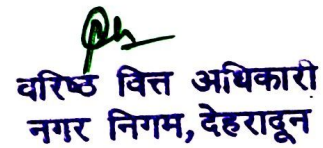 वरिष्ठ वित्त अधिकारी
नगर निगम, देहरादून